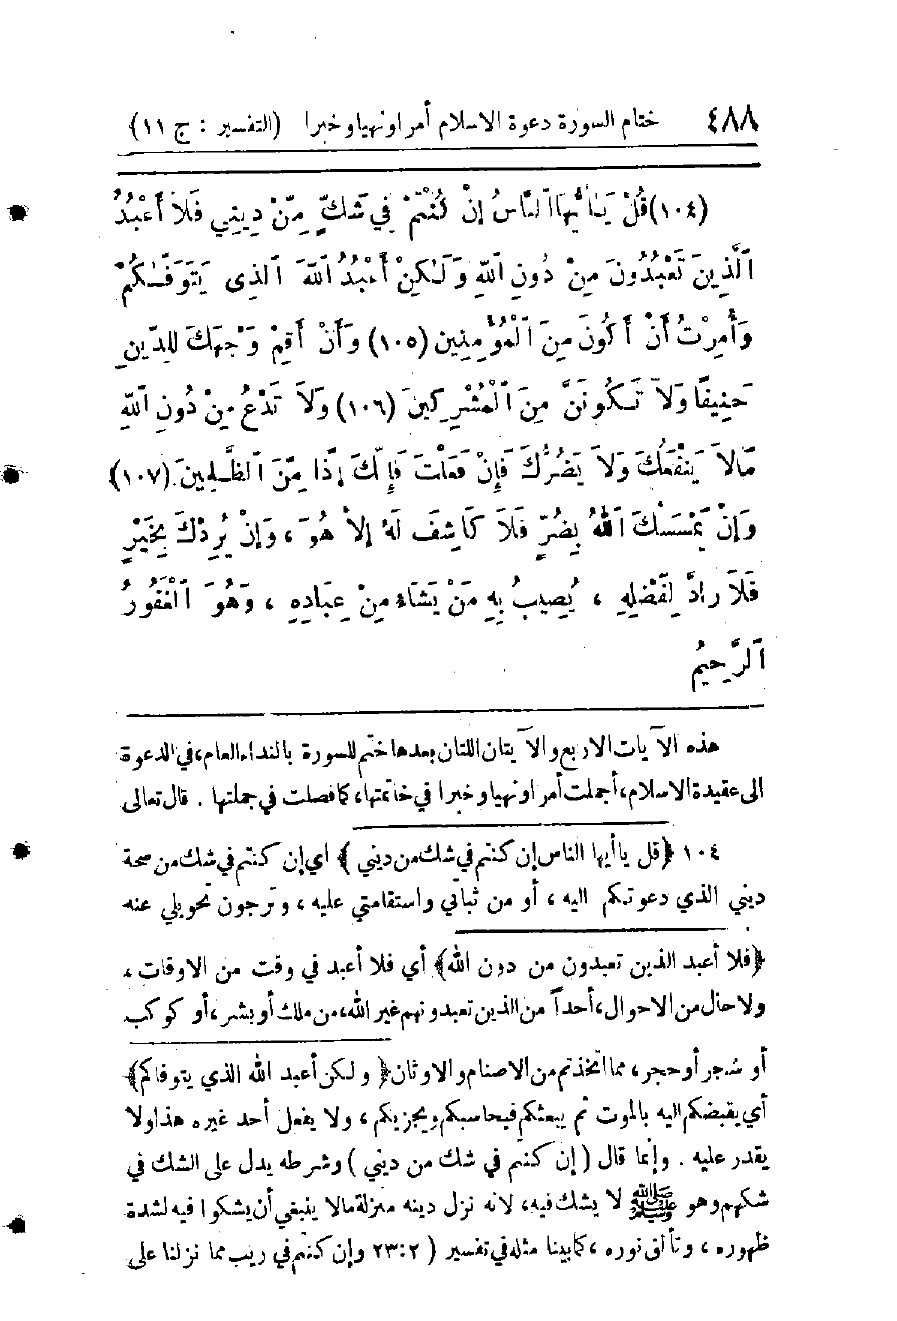 ٤٨٨ ختام السورة دعوة الاسلام أمرا ونهيا وخبرا (التفسير : ج ١١)
(١٠٤) قُلْ يَـٰأَيُّهَا ٱلنَّاسُ إِنْ كُنْتُمْ فِي شَكٍّ مِّنْ دِينِي فَلَا أَعْبُدُ
ٱلَّذِينَ تَعْبُدُونَ مِنْ دُونِ ٱللهِ وَلَـٰكِنْ أَعْبُدُ ٱللهَ ٱلَّذِى يَتَوَفَّـٰكُمْ
وَأُمِرْتُ أَنْ أَكُونَ مِنَ ٱلْمُؤْمِنِين (١٠٥) وَأَنْ أَقِمْ وَجْهَكَ لِلدِّينِ
حَنِيفًا وَلَا تَـكُونَنَّ مِنَ ٱلْمُشْرِكِينَ (١٠٦) وَلَا تَدْعُ مِنْ دُونِ ٱللهِ
مَالَا يَنْفَعُكَ وَلَا يَضُرُّكَ فَإِنْ فَعَلْتَ فَإِنَّكَ إِذًا مِّنَ ٱلظَّـٰلِمِينَ (١٠٧)
وَإِنْ يَمْسَسْكَ ٱللهُ بِضُرٍّ فَلَا كَاشِفَ لَهُ إِلَّا هُوَ ، وَإِنْ يُرِدْكَ بِخَيْرٍ
فَلَا رَادَّ لِفَضْلِهِ ، يُصِيبُ بِهِ مَنْ يَشَاءُ مِنْ عِبَادِهِ ، وَهُوَ ٱلْغَفُورُ
ٱلرَّحِيمُ
هذه الآيات الاربع والآيتان اللتان بعدها ختم للسورة بالنداء العام، في الدعوة
الى عقيدة الاسلام، أجملت أمرا ونهيا وخبرا في خاتمتها، كما فصلت في جملتها . قال تعالى
١٠٤ ﴿قل يا أيها الناس إن كنتم في شك من ديني ﴾ اي إن كنتم في شك من صحة
ديني الذي دعوتكم اليه ، أو من ثباتي واستقامتي عليه ، وترجون تحويلي عنه
﴿فلا أعبد الذين تعبدون من دون الله﴾ أي فلا أعبد في وقت من الاوقات ،
ولا حال من الاحوال ، أحداً من الذين تعبدونهم غير الله، من ملك أو بشر ، أو كوكب
أو شجر أو حجر ، مما اتخذتم من الاصنام والاوثان ﴿ ولكن أعبد الله الذي يتوفاكم﴾
أي يقبضكم اليه بالموت ثم يبعثكم فيحاسبكم ويجزيكم ، ولا يفعل أحد غيره هذا ولا
يقدر عليه . وإنما قال ( إن كنتم في شك من ديني ) وشرطه يدل على الشك في
شكهم وهو ﷺ لا يشك فيه، لانه نزل دينه منزلة مالا ينبغي أن يشكوا فيه لشدة
ظهوره ، وتألق نوره ، كما بينا مثله في تفسير ( ٢٣:٢ وإن كنتم في ريب مما نزلنا على